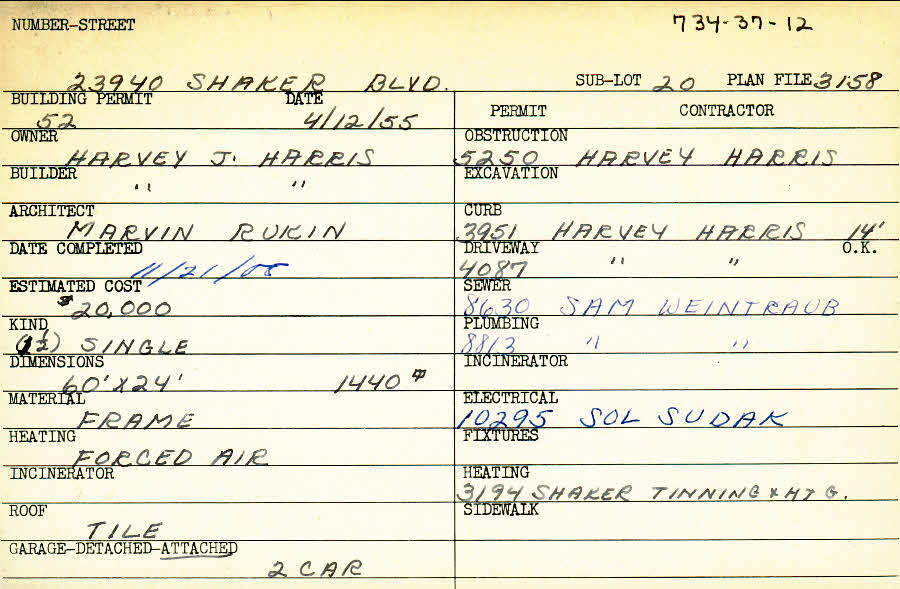 NUMBER-STREET 734-37-12
23940 SHAKER BLVD. SUB-LOT 20 PLAN FILE 3158
BUILDING PERMIT DATE
52 4/12/55
PERMIT CONTRACTOR
OWNER
HARVEY J. HARRIS
OBSTRUCTION
5250 HARVEY HARRIS
BUILDER
" "
EXCAVATION
ARCHITECT
MARVIN RUKIN
CURB
3951 HARVEY HARRIS 14'
DATE COMPLETED
11/21/55
DRIVEWAY O.K.
4087 " "
ESTIMATED COST
$20,000
SEWER
8630 SAM WEINTRAUB
KIND
(1½) SINGLE
PLUMBING
8813 " "
DIMENSIONS
60'X24' 1440
INCINERATOR
MATERIAL
FRAME
ELECTRICAL
10295 SOL SUDAK
HEATING
FORCED AIR
FIXTURES
INCINERATOR
HEATING
3194 SHAKER TINNING & HTG.
ROOF
TILE
SIDEWALK
GARAGE-DETACHED-ATTACHED
2 CAR